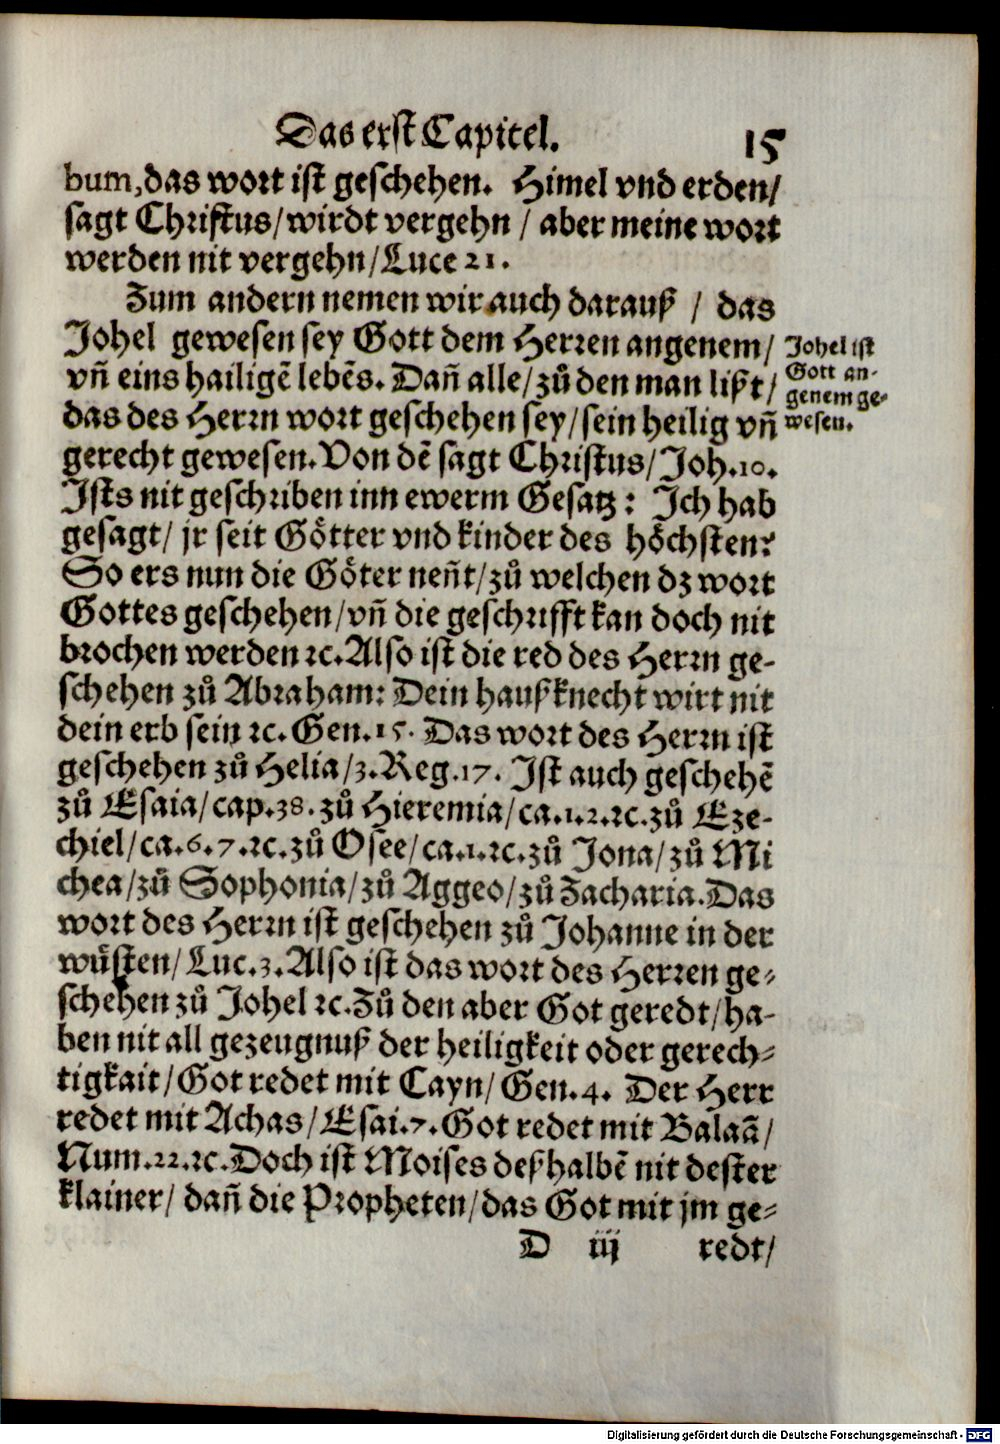 Das erst Capitel. 15
bum, das wort ist geschehen. Himel vnd erden/
sagt Christus/ wirdt vergehn / aber meine wort
werden nit vergehn/ Luce 21.
Zum andern nemen wir auch darauß / das
Johel gewesen sey Gott dem Herren angenem/
vñ eins hailigẽ lebẽs. Dañ alle/ zů den man lißt/
das des Herrn wort geschehen sey/ sein heilig vñ
gerecht gewesen. Von dẽ sagt Christus/ Joh. 10.
Ists nit geschriben inn ewerm Gesatz: Ich hab
gesagt/ jr seit Götter vnd kinder des höchsten?
So ers nun die Göter neñt/ zů welchen dz wort
Gottes geschehen/ vñ die geschrifft kan doch nit
brochen werden ꝛc. Also ist die red des Herrn ge-
schehen zů Abraham: Dein haußknecht wirt nit
dein erb sein ꝛc. Gen. 15. Das wort des Herrn ist
geschehen zů Helia/ 3. Reg. 17. Ist auch geschehẽ
zů Esaia/ cap. 38. zů Hieremia/ ca. 1. 2. ꝛc. zů Eze-
chiel/ ca. 6. 7. ꝛc. zů Osee/ ca. 1. ꝛc. zů Jona/ zů Mi
chea/ zů Sophonia/ zů Aggeo/ zů Zacharia. Das
wort des Herrn ist geschehen zů Johanne in der
wüsten/ Luc. 3. Also ist das wort des Herren ge-
schehen zů Johel ꝛc. Zů den aber Got geredt/ ha-
ben nit all gezeugnuß der heiligkeit oder gerech-
tigkait/ Got redet mit Cayn/ Gen. 4. Der Herr
redet mit Achas/ Esai. 7. Got redet mit Balaã/
Num. 22. ꝛc. Doch ist Moises deßhalbẽ nit dester
klainer/ dañ die Propheten/ das Got mit jm ge-
D iij redt/
Johel ist
Gott an-
genem ge-
wesen.
Digitalisierung gefördert durch die Deutsche Forschungsgemeinschaft - DFG